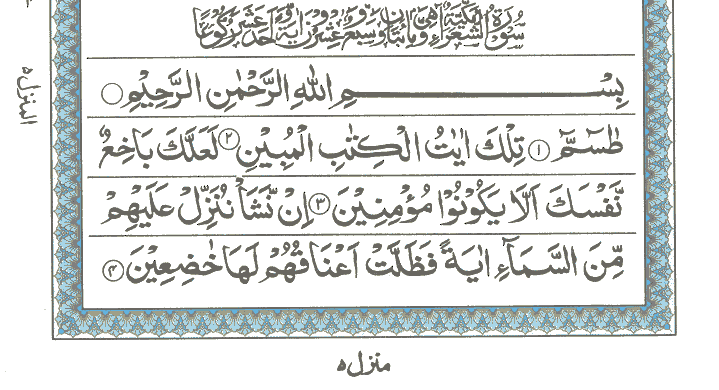 سُوْرَةُ الشُّعَرَآءِ مَكِّيَّةٌ وَّهِيَ مِائَتَانِ وَسَبْعٌ وَّعِشْرُوْنَ اٰيَةً وَّاَحَدَ عَشَرَ رُكُوْعًا
بِسْمِ اللهِ الرَّحْمٰنِ الرَّحِيْمِ
طٰسٓمّٓ ۝١ تِلْكَ اٰيٰتُ الْكِتٰبِ الْمُبِيْنِ ۝٢ لَعَلَّكَ بَاخِعٌ
نَّفْسَكَ اَلَّا يَكُوْنُوْا مُؤْمِنِيْنَ ۝٣ اِنْ نَّشَاْ نُنَزِّلْ عَلَيْهِمْ
مِّنَ السَّمَآءِ اٰيَةً فَظَلَّتْ اَعْنَاقُهُمْ لَهَا خٰضِعِيْنَ ۝٤
المنزل ٥
منزل ٥